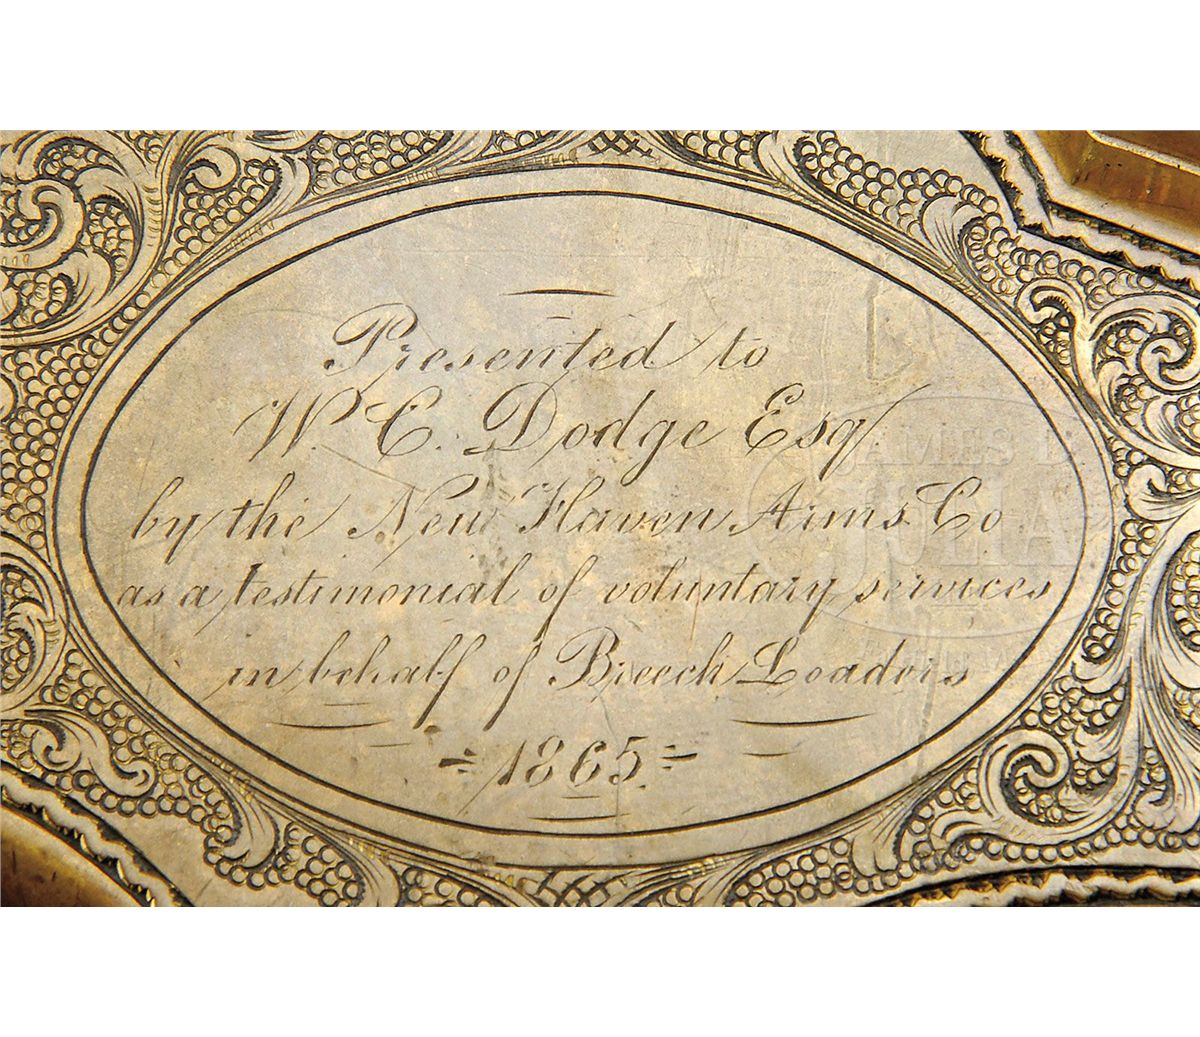 Presented to
W. C. Dodge Esq
by the New Haven Arms Co
as a testimonial of voluntary services
in behalf of Breech Loaders
1865.
JAMES D.
JULIA